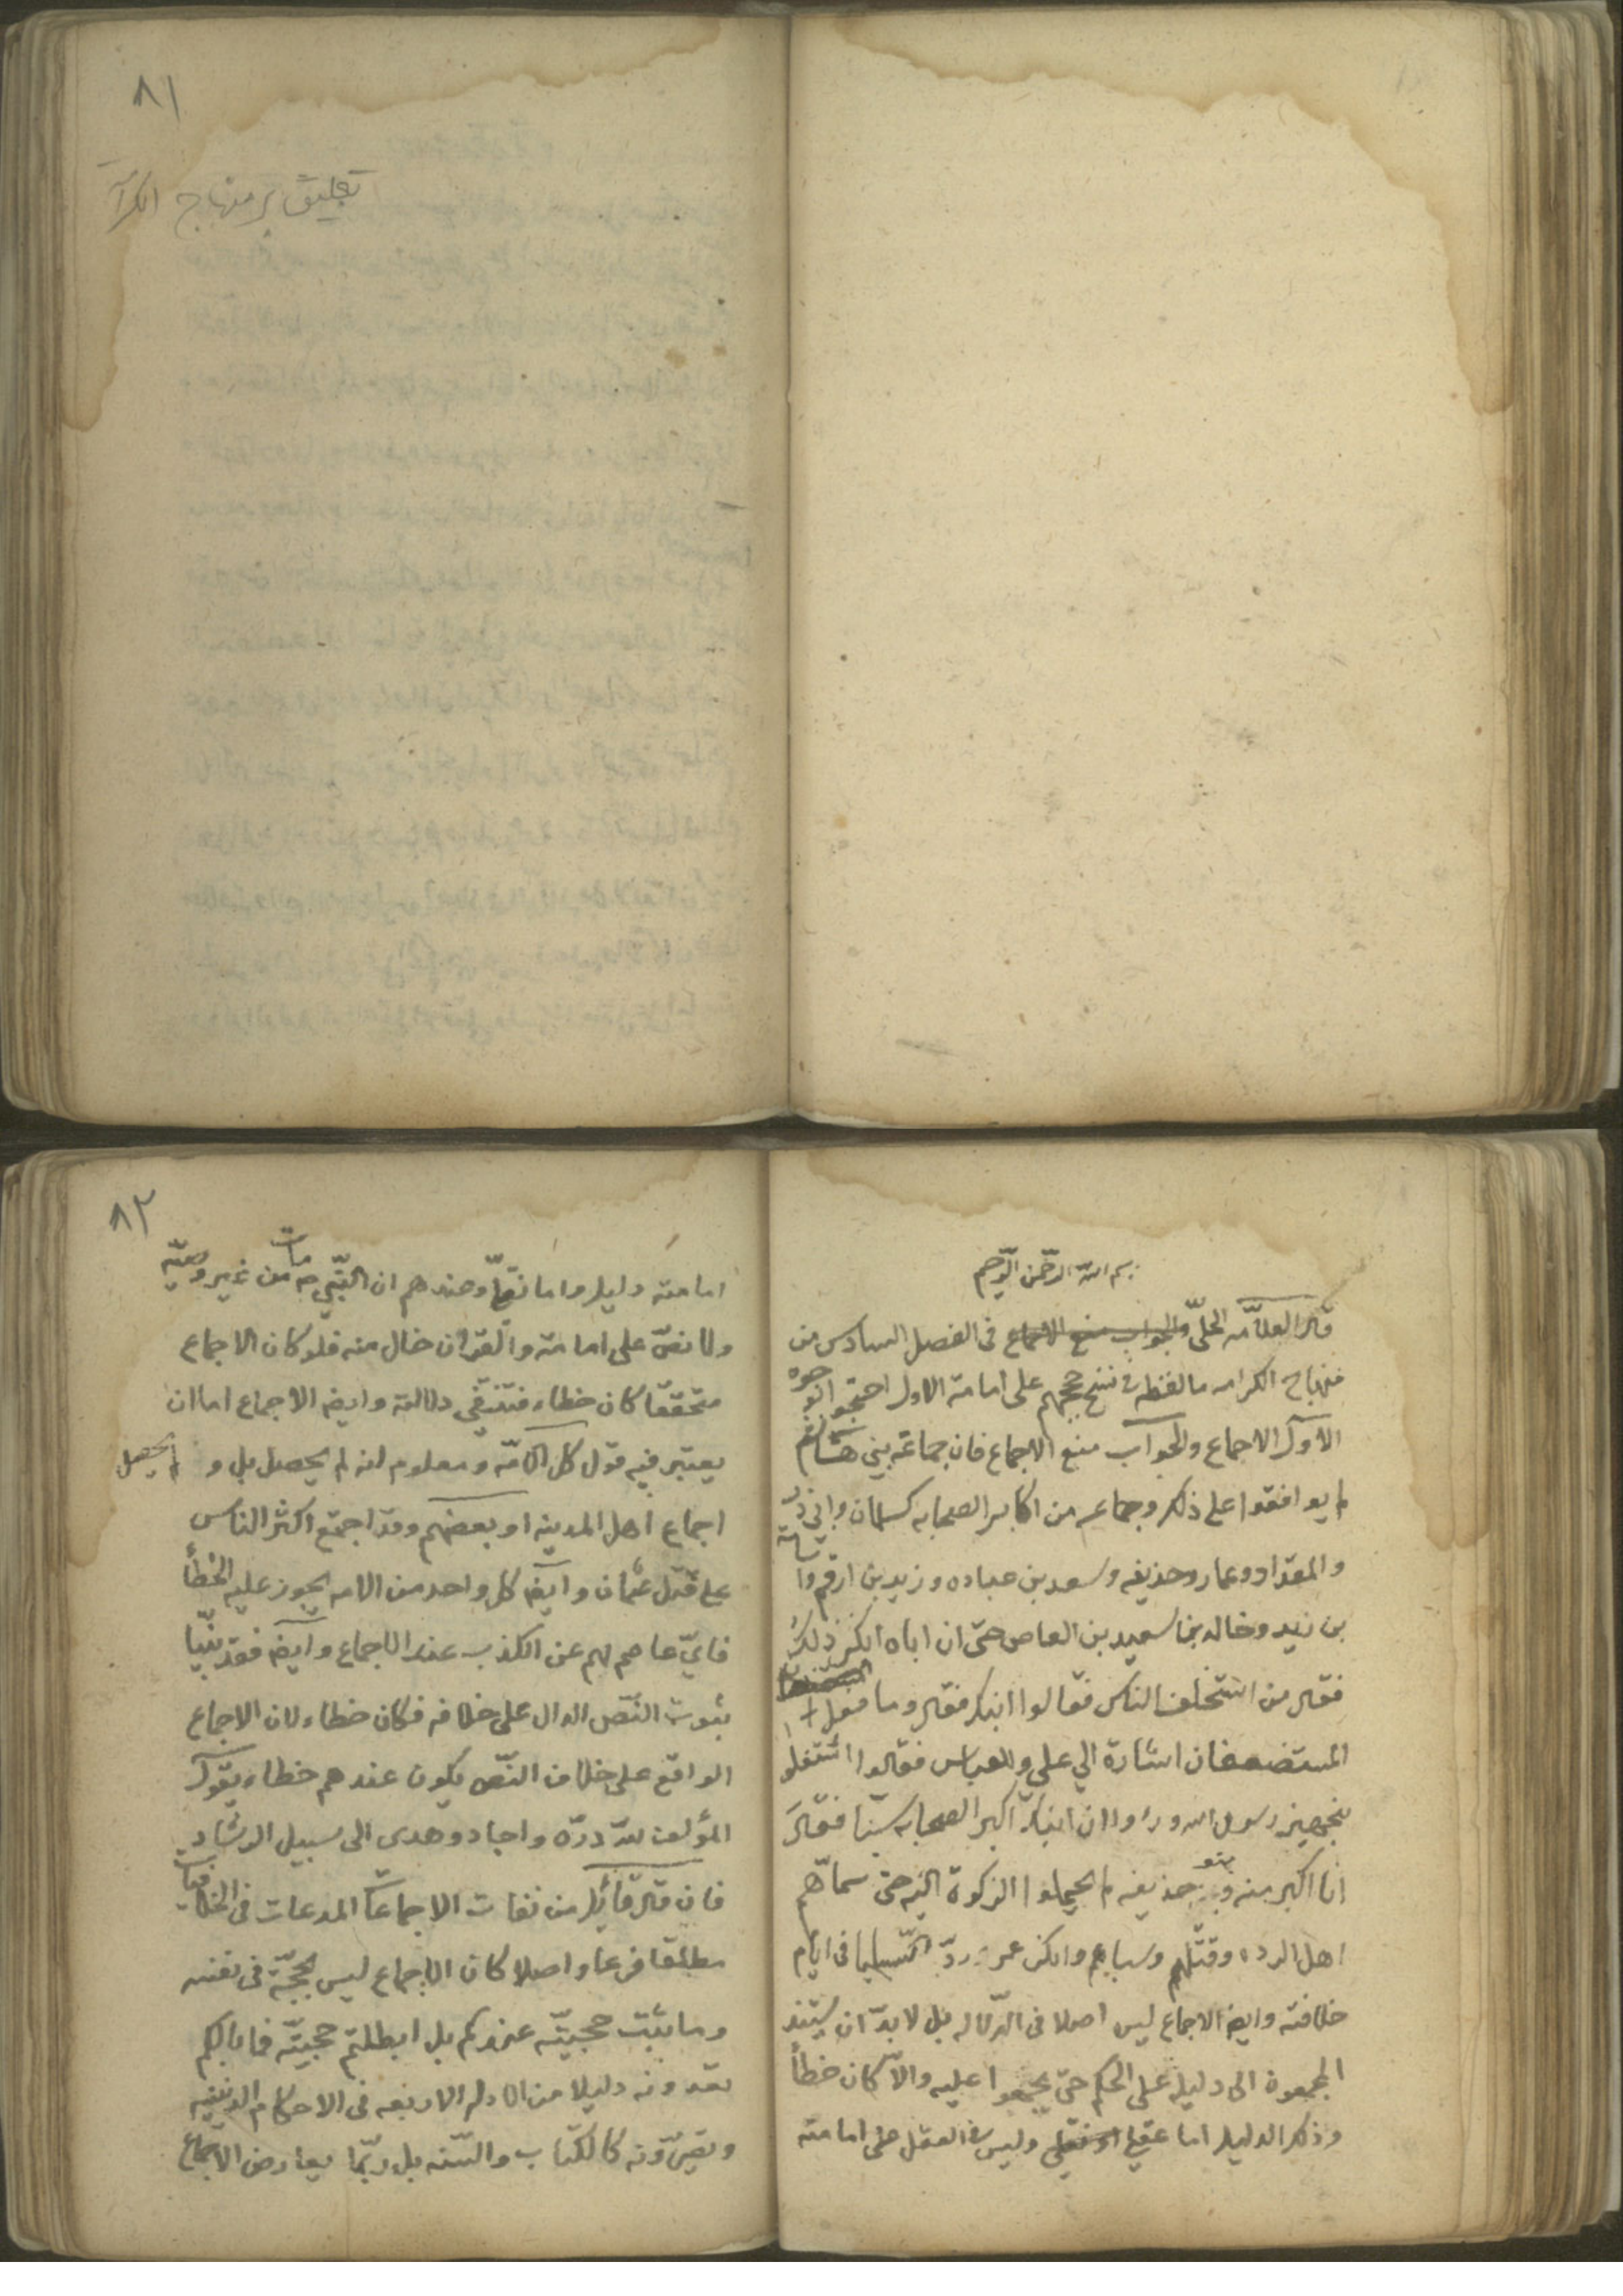 ٨١
تعليق بر منهاج الكرا
بسم الله الرحمن الرحيم
قال العلامه الحلّي والجواب منع الاجماع فى الفصل السادس من
منهاج الكرامه ما لفظه فى نسخ حججهم على امامة الاول احتجوا بوجوه
الاول الاجماع والجواب منع الاجماع فان جماعة بني هاشم
لم يوافقوا على ذلك وجماعه من اكابر الصحابه كسلمان وابي ذر
والمقداد وعمار وحذيفه وسعد بن عباده وزيد بن ارقم واسامة
بن زيد وخالد بن سعيد بن العاص حتى ان اباه انكر ذلك
فقال من استخلف الناس فقالوا ابنك فقال وما فعل
المستضعفان اشارة الى علي والعباس فقالوا اشتغلوا
بتجهيز رسول الله وراوا ان ابنك اكبر الصحابه سنّا فقال
انا اكبر منه وبنو حنيفه لم يحملوا الزكوة اليه حتى سماهم
اهل الرده وقتلهم وسباهم وانكر عمر وردّ السبايا فى ايام
خلافته وايضا الاجماع ليس اصلا فى الدلاله بل لا بدّ ان يستند
المجمعون الى دليل على الحكم حتى يجمعوا عليه والّا كان خطأ
وذلك الدليل اما عقلي او نقلي وليس فى العقل على امامته
٨٢
امامته دليل واما نقلا وعندهم ان النبي ص مات من غير وصيّه
ولا نصّ على امامته والقران خال منه فلو كان الاجماع
متحققا كان خطاء فتنتفي دلالته وايضا الاجماع اما ان
يعتبر فيه قول كل الامّه ومعلوم انه لم يحصل بل ولم يحصل
اجماع اهل المدينه او بعضهم وقد اجتمع اكثر الناس
على قتل عثمان وايضا كل واحد من الامه يجوز عليه الخطأ
فايّ عاصم لهم عن الكذب عند الاجماع وايضا فقد بيّنا
ثبوت النصّ الدال على خلافه فكان خطاء لان الاجماع
الواقع على خلاف النصّ يكون عندهم خطاء يقول
المؤلف لله درّه واجاد وهدى الى سبيل الرشاد
فان قال قائل من نفات الاجماعات المدعات فى الخلافيات
مطلقا فرعا واصلا كان الاجماع ليس بحجّة فى نفسه
وما يثبت حجيّته عندكم بل ابطلتم حجيّته فما بالكم
تعدونه دليلا من الادلة الاربعه فى الاحكام الدينيه
كالكتاب والسّنه بل ربّما يعارض الاجماع